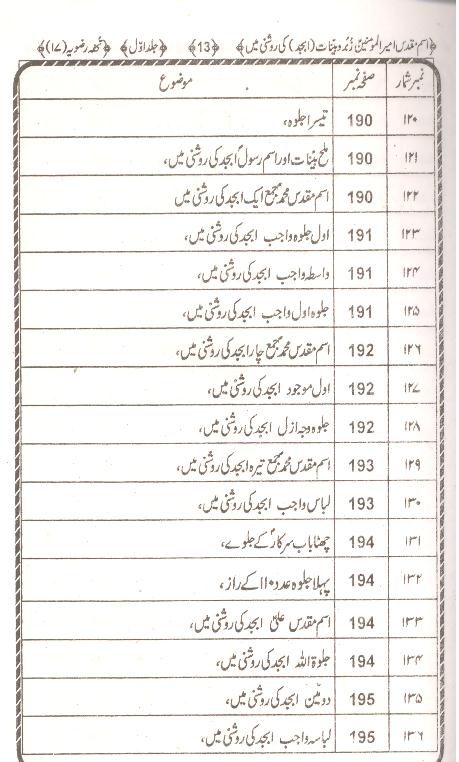 ﴿اسم مقدس امیرالمومنینؑ زُبر و بینات (ابجد) کی روشنی میں﴾ ﴿13﴾ ﴿جلد اوّل﴾ ﴿تحفہ رضویہ (۱۷)﴾
نمبر شمار صفحہ نمبر موضوع
۱۲۰ 190 تیسرا جلوہ،
۱۲۱ 190 ملح بینات اور اسم رسولؐ ابجد کی روشنی میں،
۱۲۲ 190 اسم مقدس محمدؐ مجمع ایک ابجد کی روشنی میں
۱۲۳ 191 اول جلوہ واجب ابجد کی روشنی میں،
۱۲۴ 191 واسطہ واجب ابجد کی روشنی میں،
۱۲۵ 191 جلوہ اول واجب ابجد کی روشنی میں،
۱۲۶ 192 اسم مقدس محمدؐ مجمع چار ابجد کی روشنی میں،
۱۲۷ 192 اول موجود ابجد کی روشنی میں،
۱۲۸ 192 جلوہ وجہ ازل ابجد کی روشنی میں،
۱۲۹ 193 اسم مقدس محمدؐ مجمع تیرہ ابجد کی روشنی میں،
۱۳۰ 193 لباس واجب ابجد کی روشنی میں،
۱۳۱ 194 چھٹا باب سرکارؐ کے جلوے،
۱۳۲ 194 پہلا جلوہ عدد ۱۱۰ کے راز،
۱۳۳ 194 اسم مقدس علیؑ ابجد کی روشنی میں،
۱۳۴ 194 جلوۃ اللہ ابجد کی روشنی میں،
۱۳۵ 195 دو مبین ابجد کی روشنی میں،
۱۳۶ 195 لباسہ واجب ابجد کی روشنی میں،